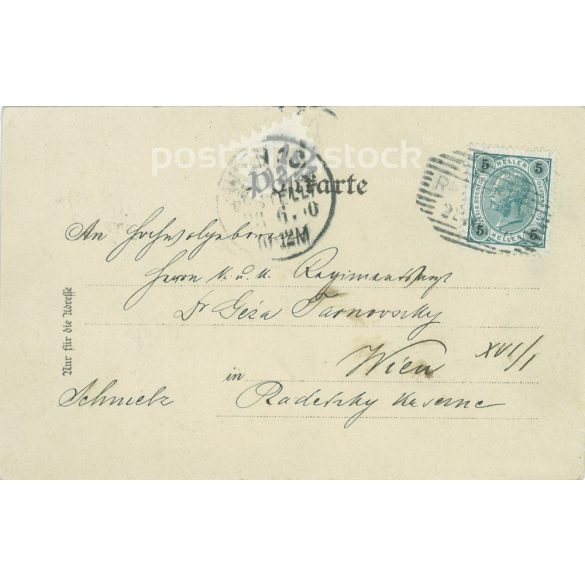 posterstock
Postkarte
WIEN 10
BESTELLT
6
10-12M
5 HELLER 5
5 HELLER 5
An Hochwolgeboren
Herrn K. u. K. Regimentsarzt
Dr Géza Tarnovszky
Wien XVI/1
in
Schmelz Radetzky Kaserne
Nur für die Adresse